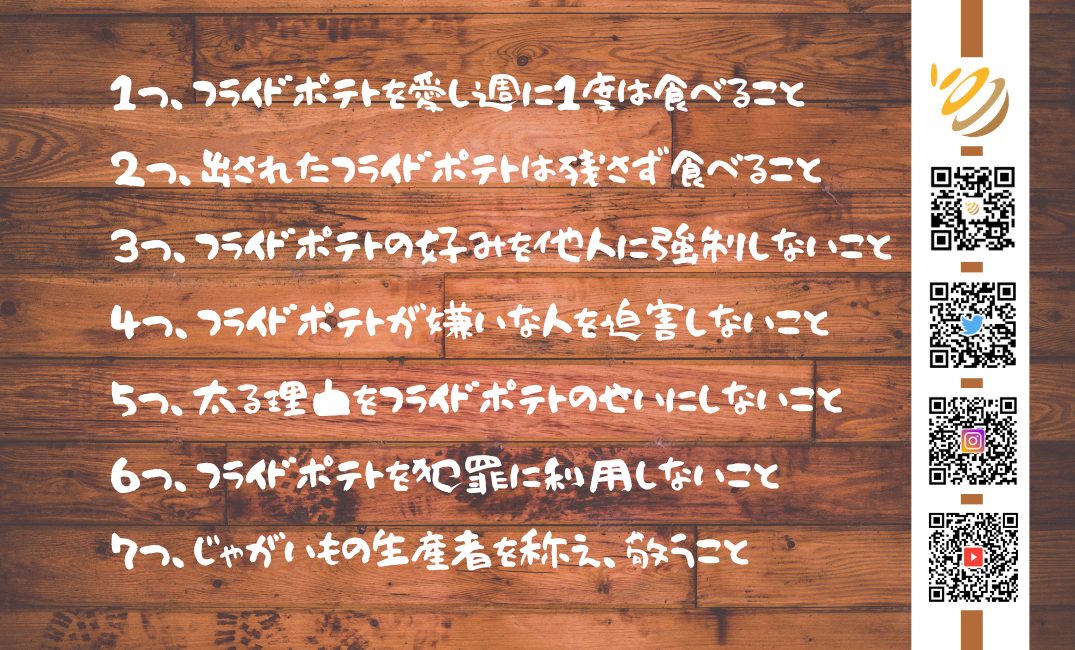 1つ、フライドポテトを愛し週に1度は食べること
2つ、出されたフライドポテトは残さず食べること
3つ、フライドポテトの好みを他人に強制しないこと
4つ、フライドポテトが嫌いな人を迫害しないこと
5つ、太る理由をフライドポテトのせいにしないこと
6つ、フライドポテトを犯罪に利用しないこと
7つ、じゃがいもの生産者を称え、敬うこと